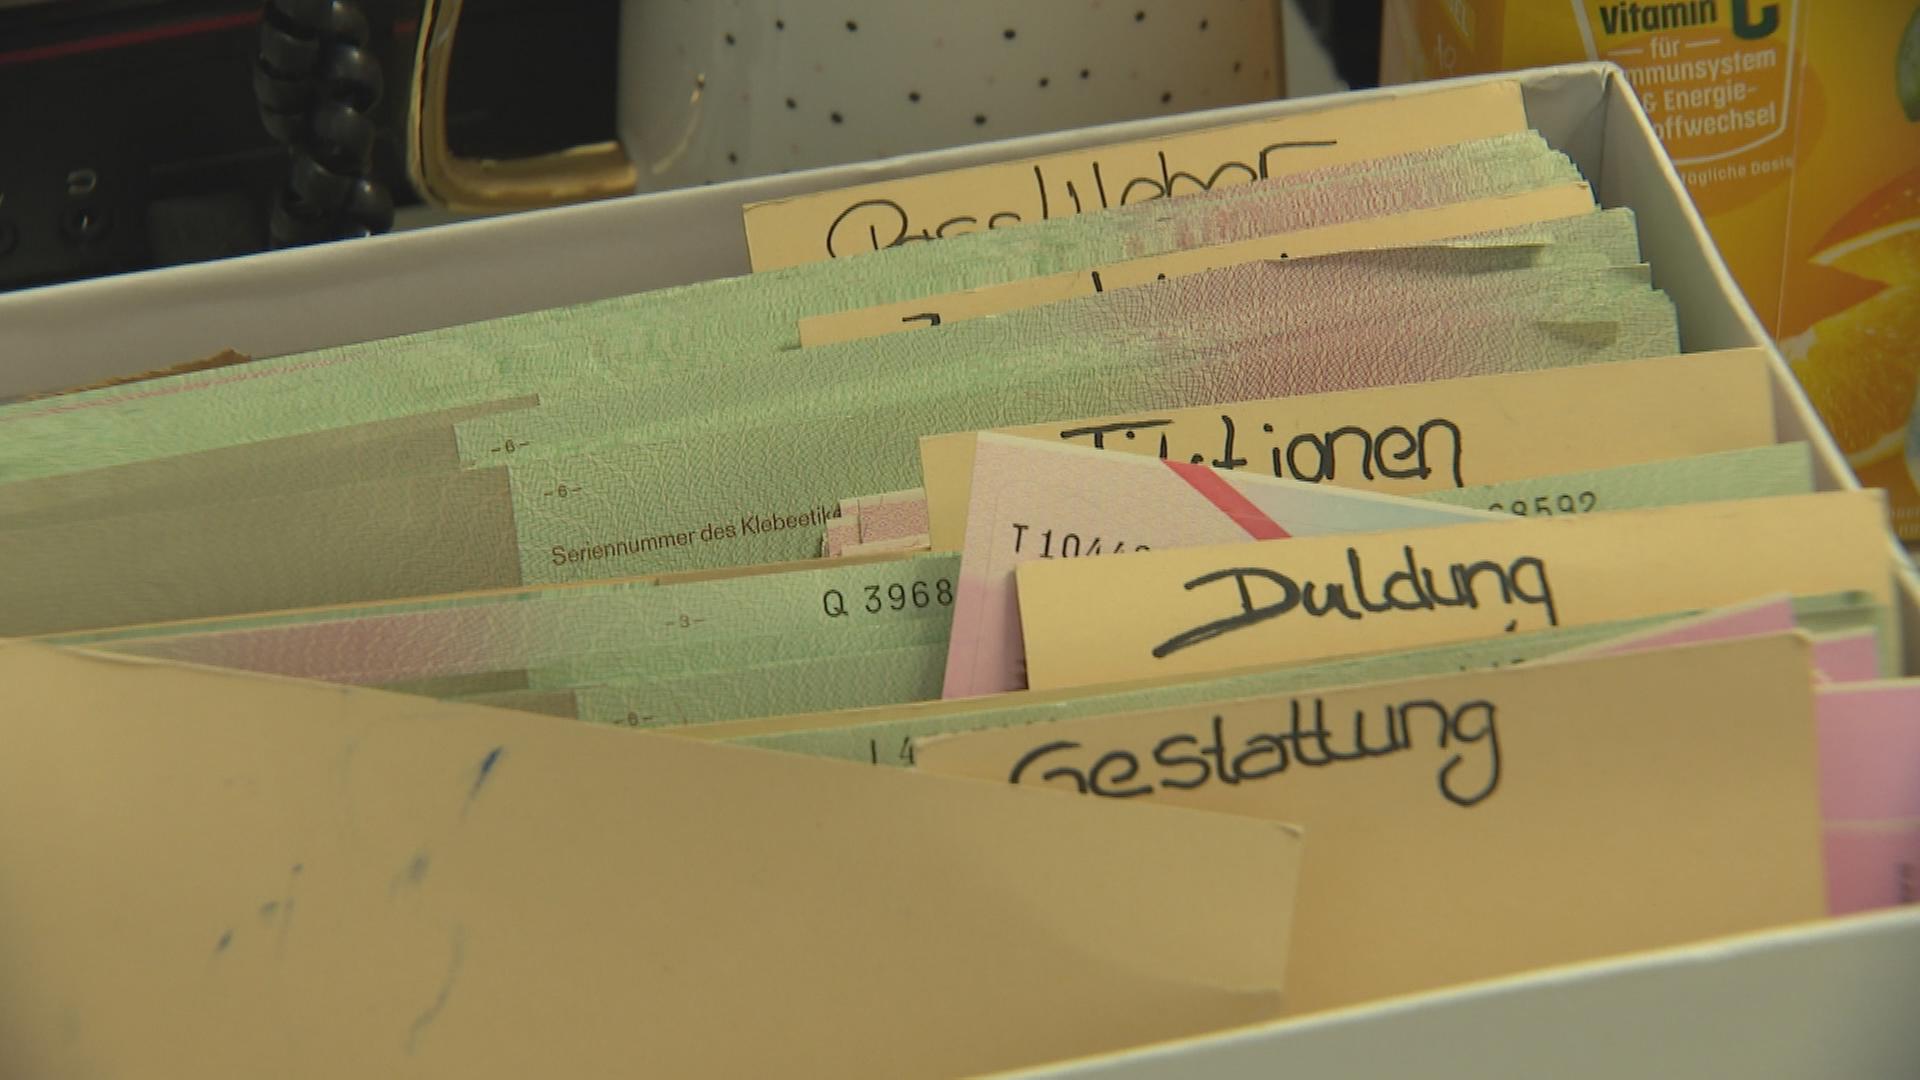 Vitamin C
für
mmunsystem
& Energie-
offwechsel
tägliche Dosis
-6-
-6-
Seriennummer des Klebeetik
68592
T 1044
Q 3968
-3-
Duldung
-6-
L 4
Gestattung